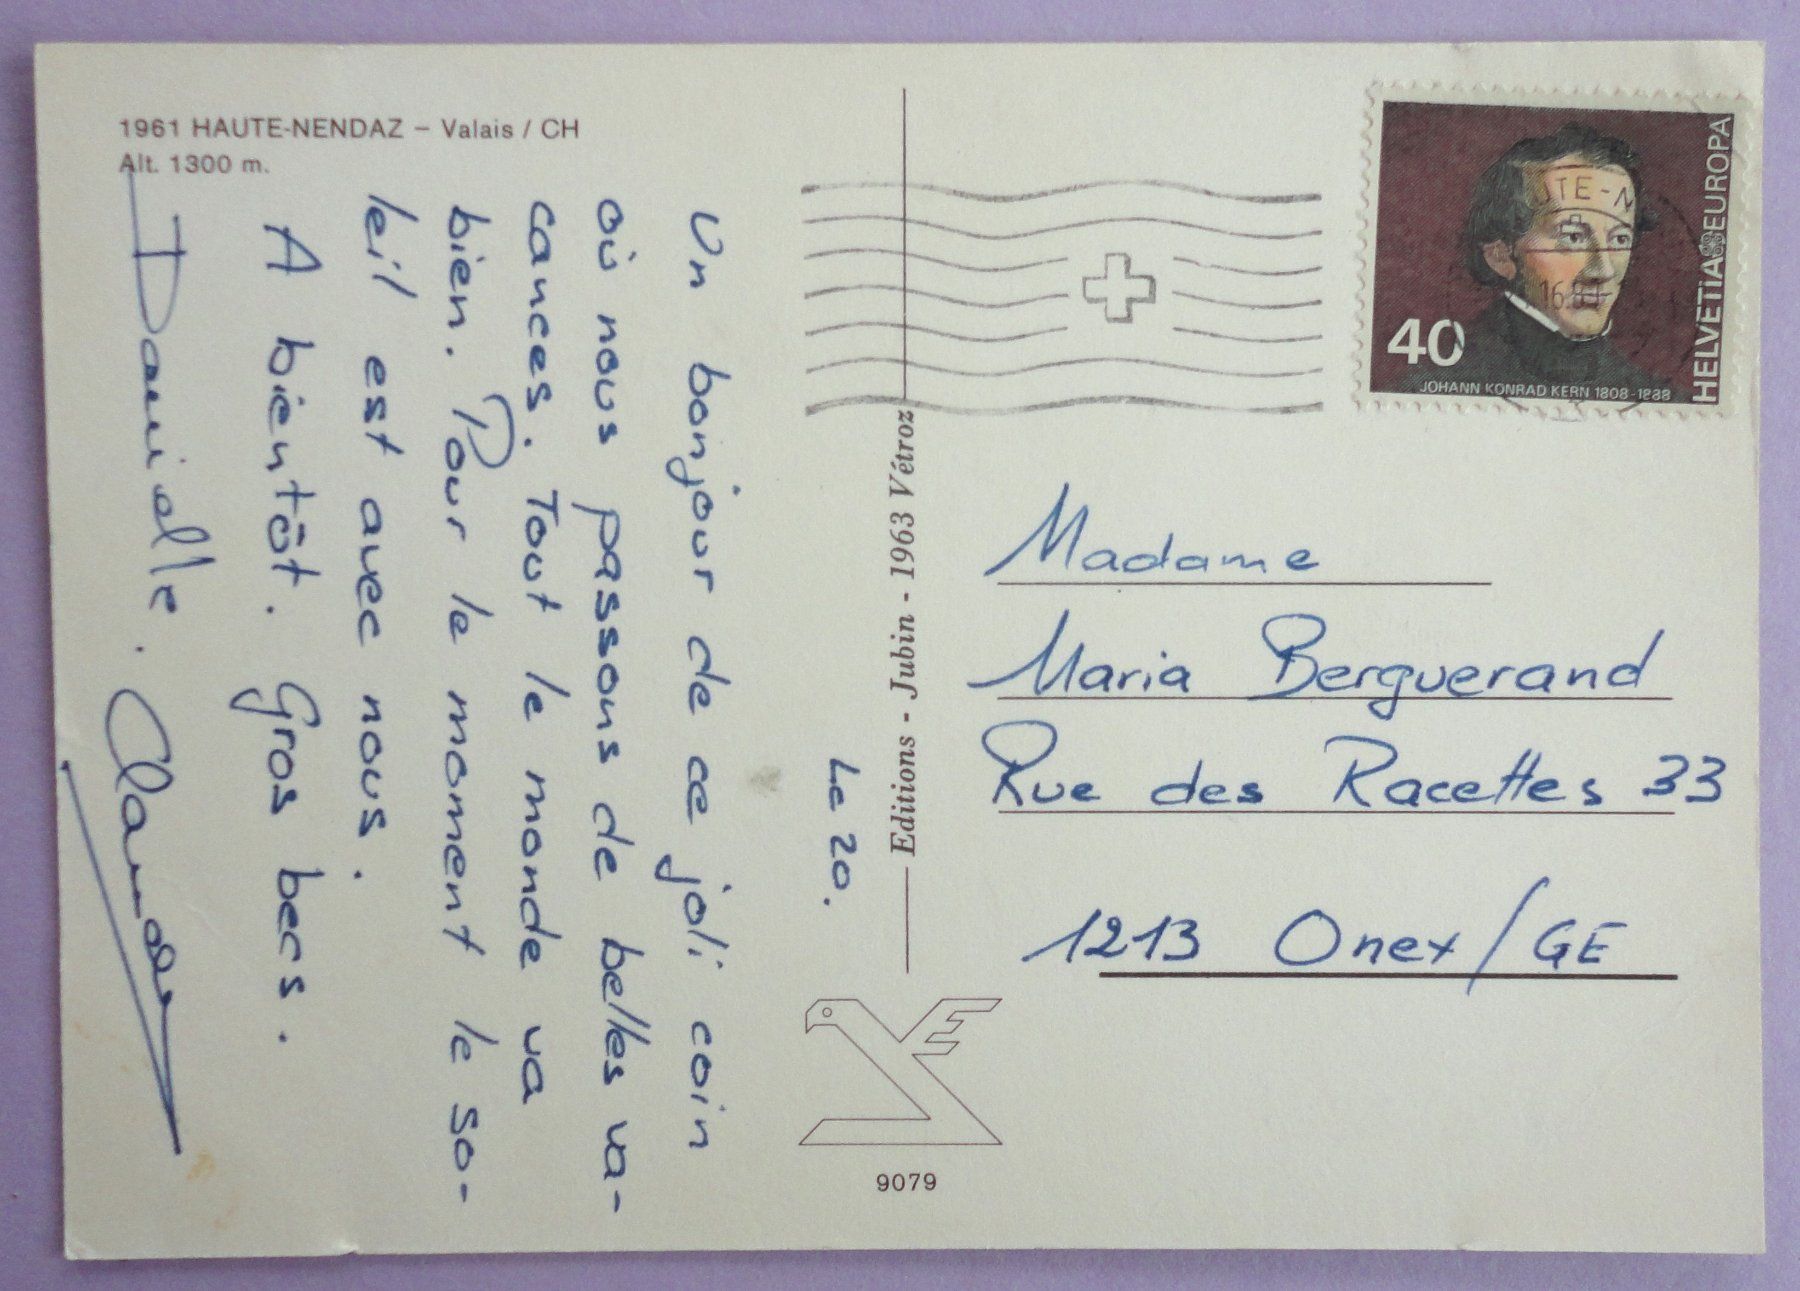 1961 HAUTE-NENDAZ – Valais / CH
Alt. 1300 m.
Le 20.
Un bonjour de ce joli coin
où nous passons de belles va-
cances. Tout le monde va
bien. Pour le moment le so-
leil est avec nous.
A bientôt. Gros becs.
Danielle. Claude
Editions - Jubin - 1963 Vétroz
9079
40
JOHANN KONRAD KERN 1808-1888
HELVETIA EUROPA
Madame
Maria Berguerand
Rue des Racettes 33
1213 Onex/GE